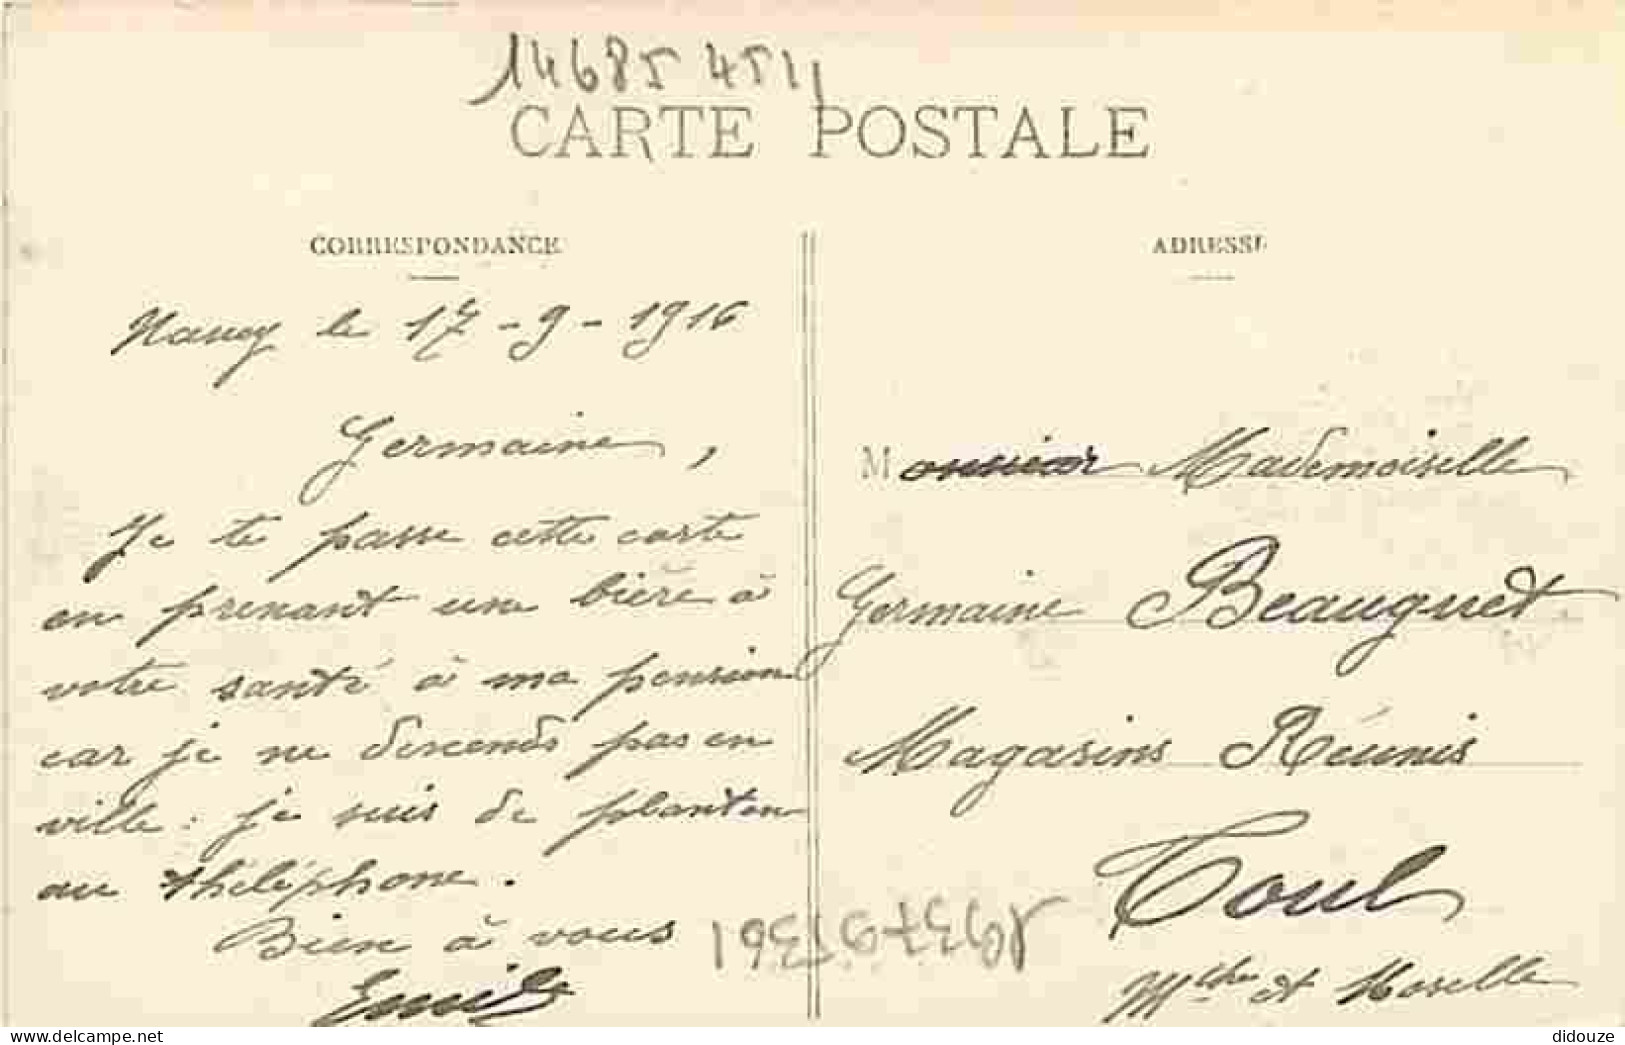 14685 4511
CARTE POSTALE
CORRESPONDANCE
Nancy le 17-9-1916
Germaine,
Je te passe cette carte
en prenant une bière à
votre santé à ma pension
car je ne descends pas en
ville : je suis de planton
au théléphone.
Bien à vous
Emile
ADRESSE
Monsieur Mademoiselle
Germaine Beauguet
Magasins Réunis
Toul
Mthe et Moselle
didouze